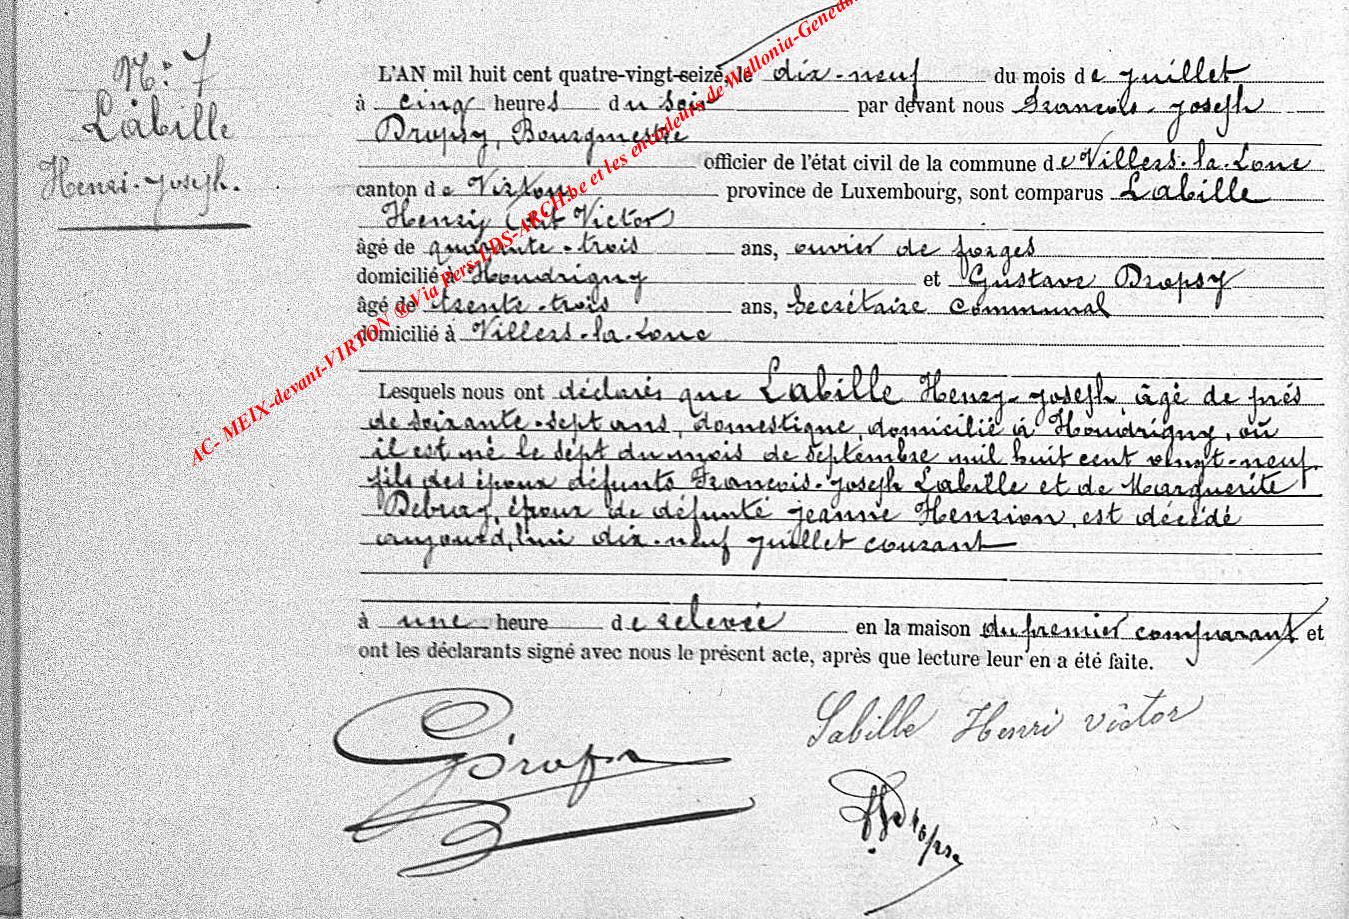 N: 7
Labille
Henri-Joseph.
L'AN mil huit cent quatre-vingt-seize, le dix-neuf du mois de juillet
à cinq heures du soir par devant nous François-Joseph
Dropsy, Bourgmestre
officier de l'état civil de la commune de Villers-la-Loue
canton de Virton province de Luxembourg, sont comparus Labille
Henry (dit Victor)
âgé de quarante-trois ans, ouvrier de forges
domicilié à Houdrigny et Gustave Dropsy
âgé de trente-trois ans, Secrétaire communal
domicilié à Villers-la-Loue
Lesquels nous ont déclarés que Labille Henry-Joseph, âgé de près
de soixante-sept ans, domestique, domicilié à Houdrigny, où
il est né le sept du mois de septembre mil huit cent vingt-neuf,
fils des époux défunts François-Joseph Labille et de Marguerite
époux de défunte Jeanne Henrion, est décédé
aujourd'hui dix-neuf juillet courant
à une heure de relevée en la maison du premier comparant et
ont les déclarants signé avec nous le présent acte, après que lecture leur en a été faite.
Labille Henri victor
GDropsy
Dropsy
AC- MEIX-devant-VIRTON ® Via Pers-LDS-ARCH.be et les encodeurs de Wallonia-Geneal